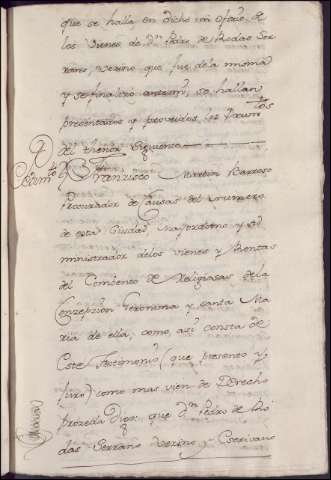 que se halla en dicho mi ofizº. A
los Vienes de Dn. Pedro de Rodas Ser
rano, vezino que fue de la misma
y se finalizo antemi, se hallan
presentados y proveidos, los Pedimtos
del thenor siguiente
Pedimto.
Francisco Martin Barroso
Procurador de Causas del numero
de esta Ciudad Mayordomo y Ad
ministrador de los vienes y Rentas
del Combento de Religiosas de la
Conzepzion Geronima y santa Ma
ria de ella, como asi consta de
Este Testimonio (que presento y
juro) como mas vien de Derecho
prozeda Digo: que Dn. Pedro de Ro
das Serrano Vezino y Escrivano